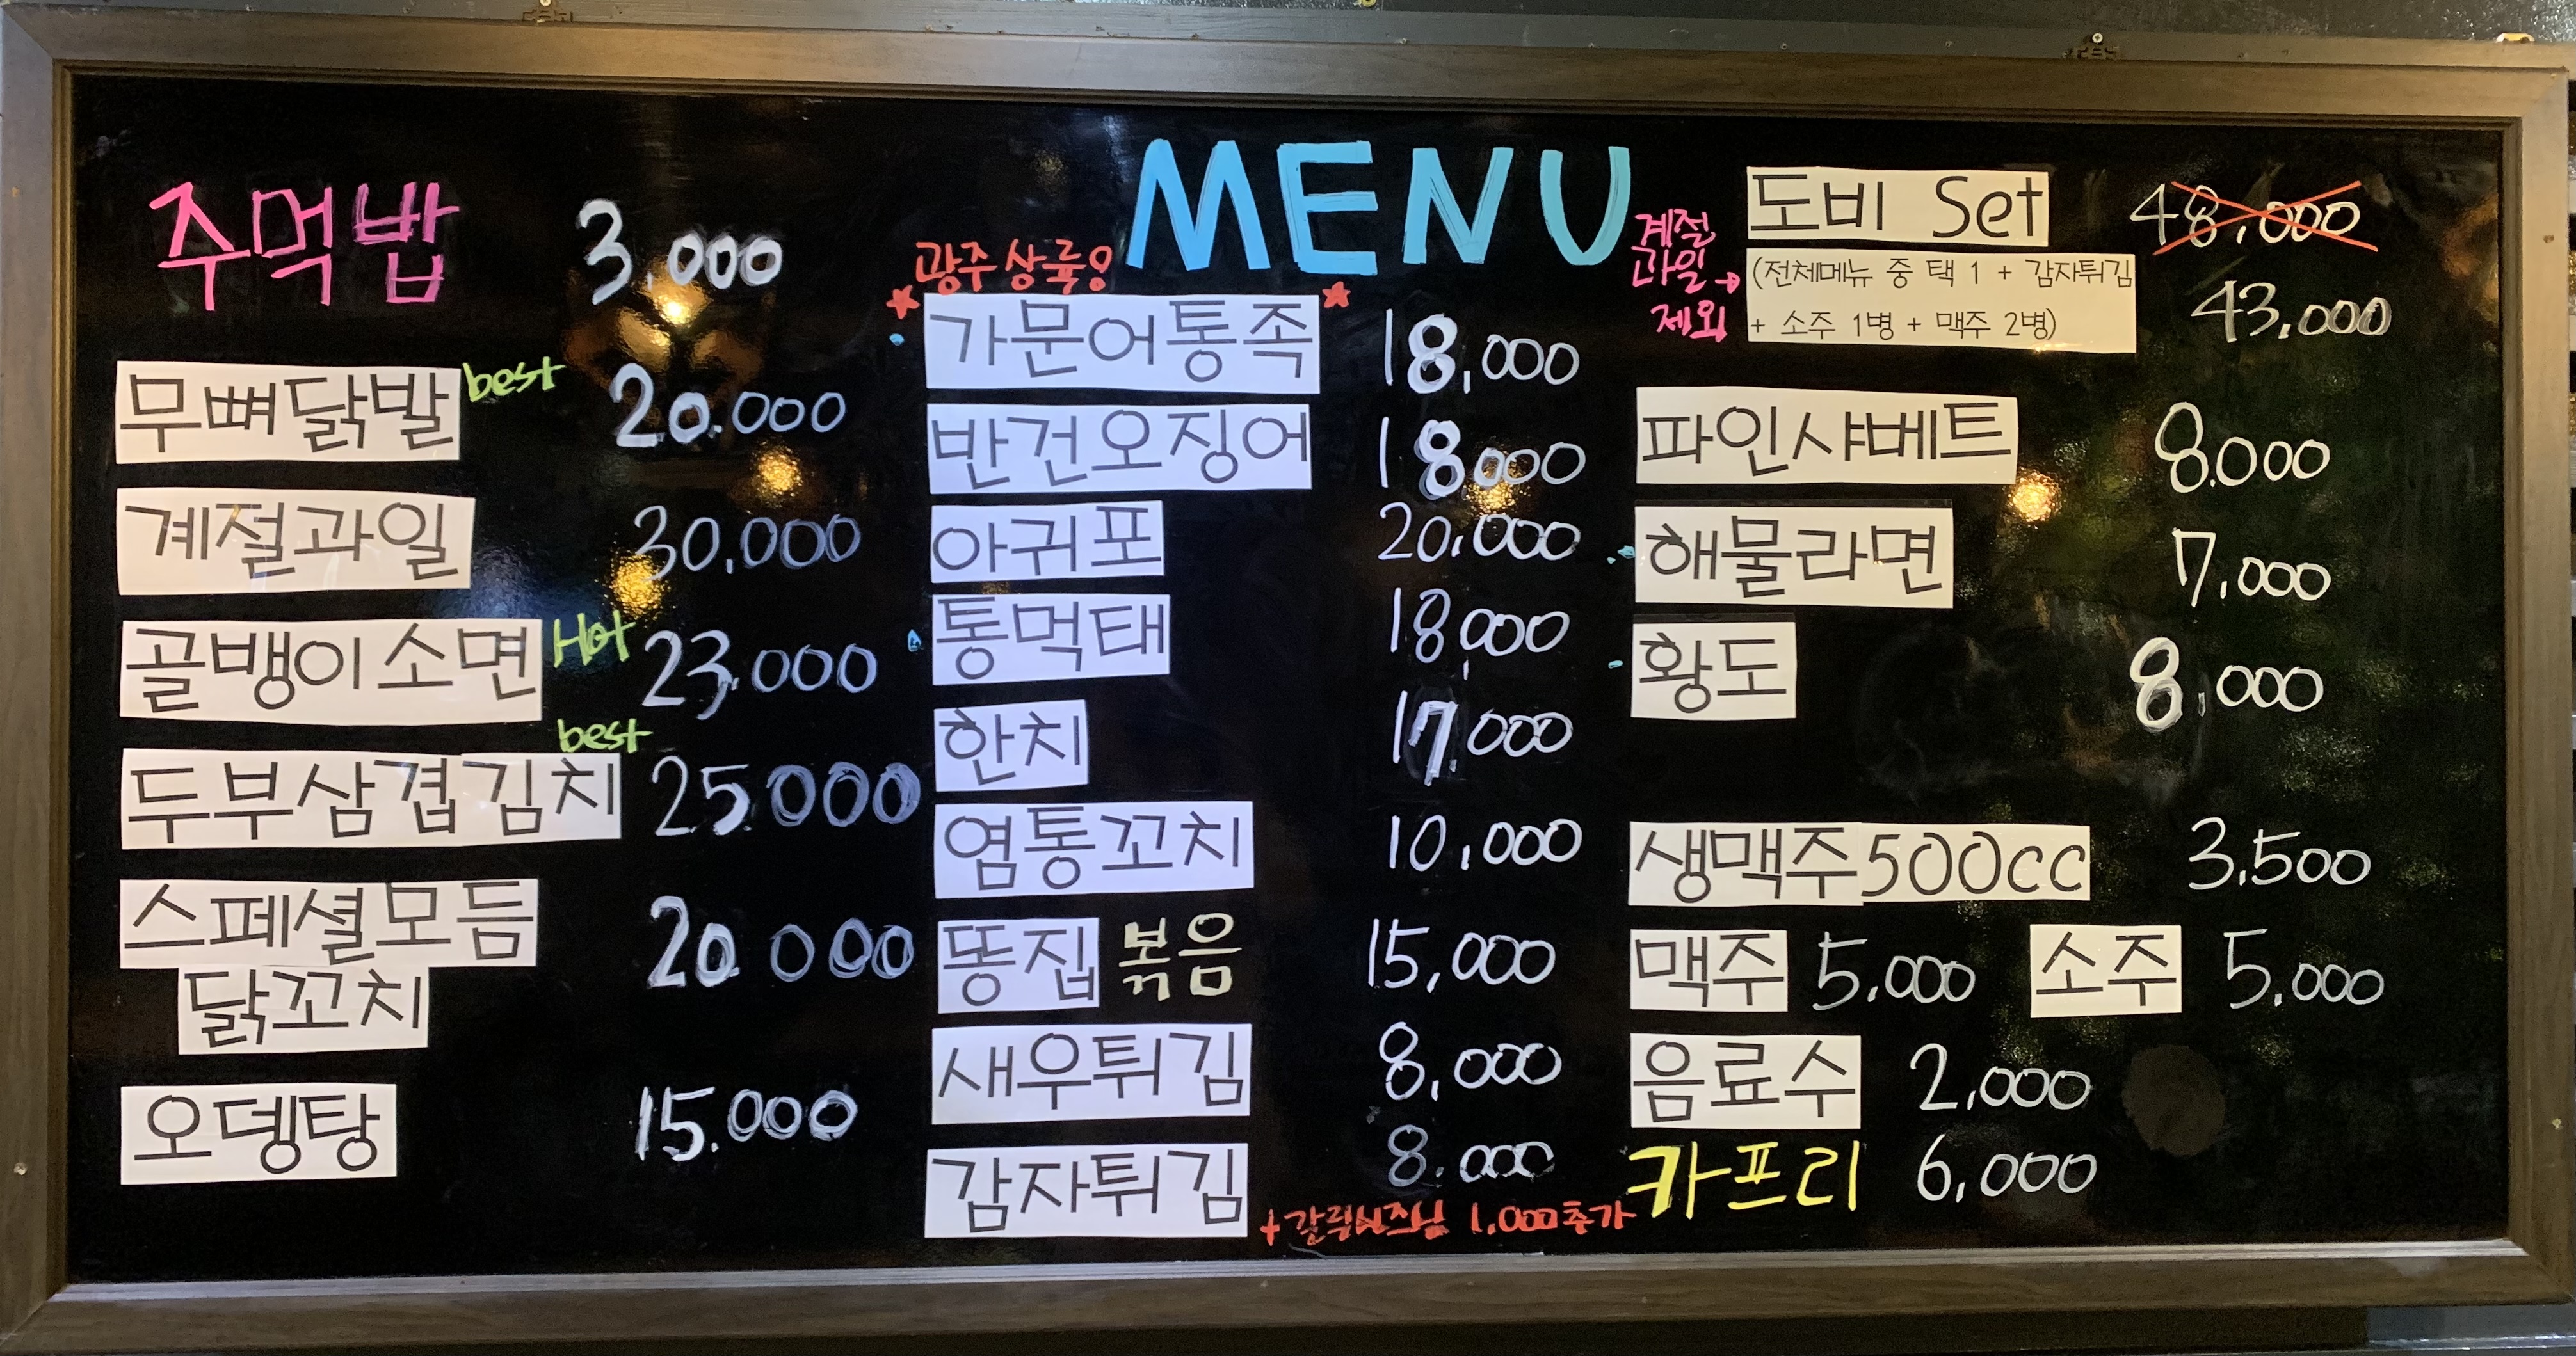 MENU
주먹밥 3,000
무뼈닭발 best 20.000
계절과일 30,000
골뱅이소면 Hot 23,000
best
두부삼겹김치 25000
스페셜모듬 20 000
닭꼬치
오뎅탕 15.000
광주상륙!
가문어통족 18,000
반건오징어 18000
아귀포 20,000
통먹태 18,000
한치 17,000
염통꼬치 10,000
똥집 볶음 15,000
새우튀김 8,000
감자튀김 8.000
+ 갈릭시즈닝 1.000추가
계절
과일→
제외
도비 Set 48,000
(전체메뉴 중 택 1 + 감자튀김
+ 소주 1병 + 맥주 2병)
43,000
파인샤베트 8.000
해물라면 7,000
황도 8,000
생맥주500cc 3,500
맥주 5,000 소주 5,000
음료수 2,000
카프리 6,000